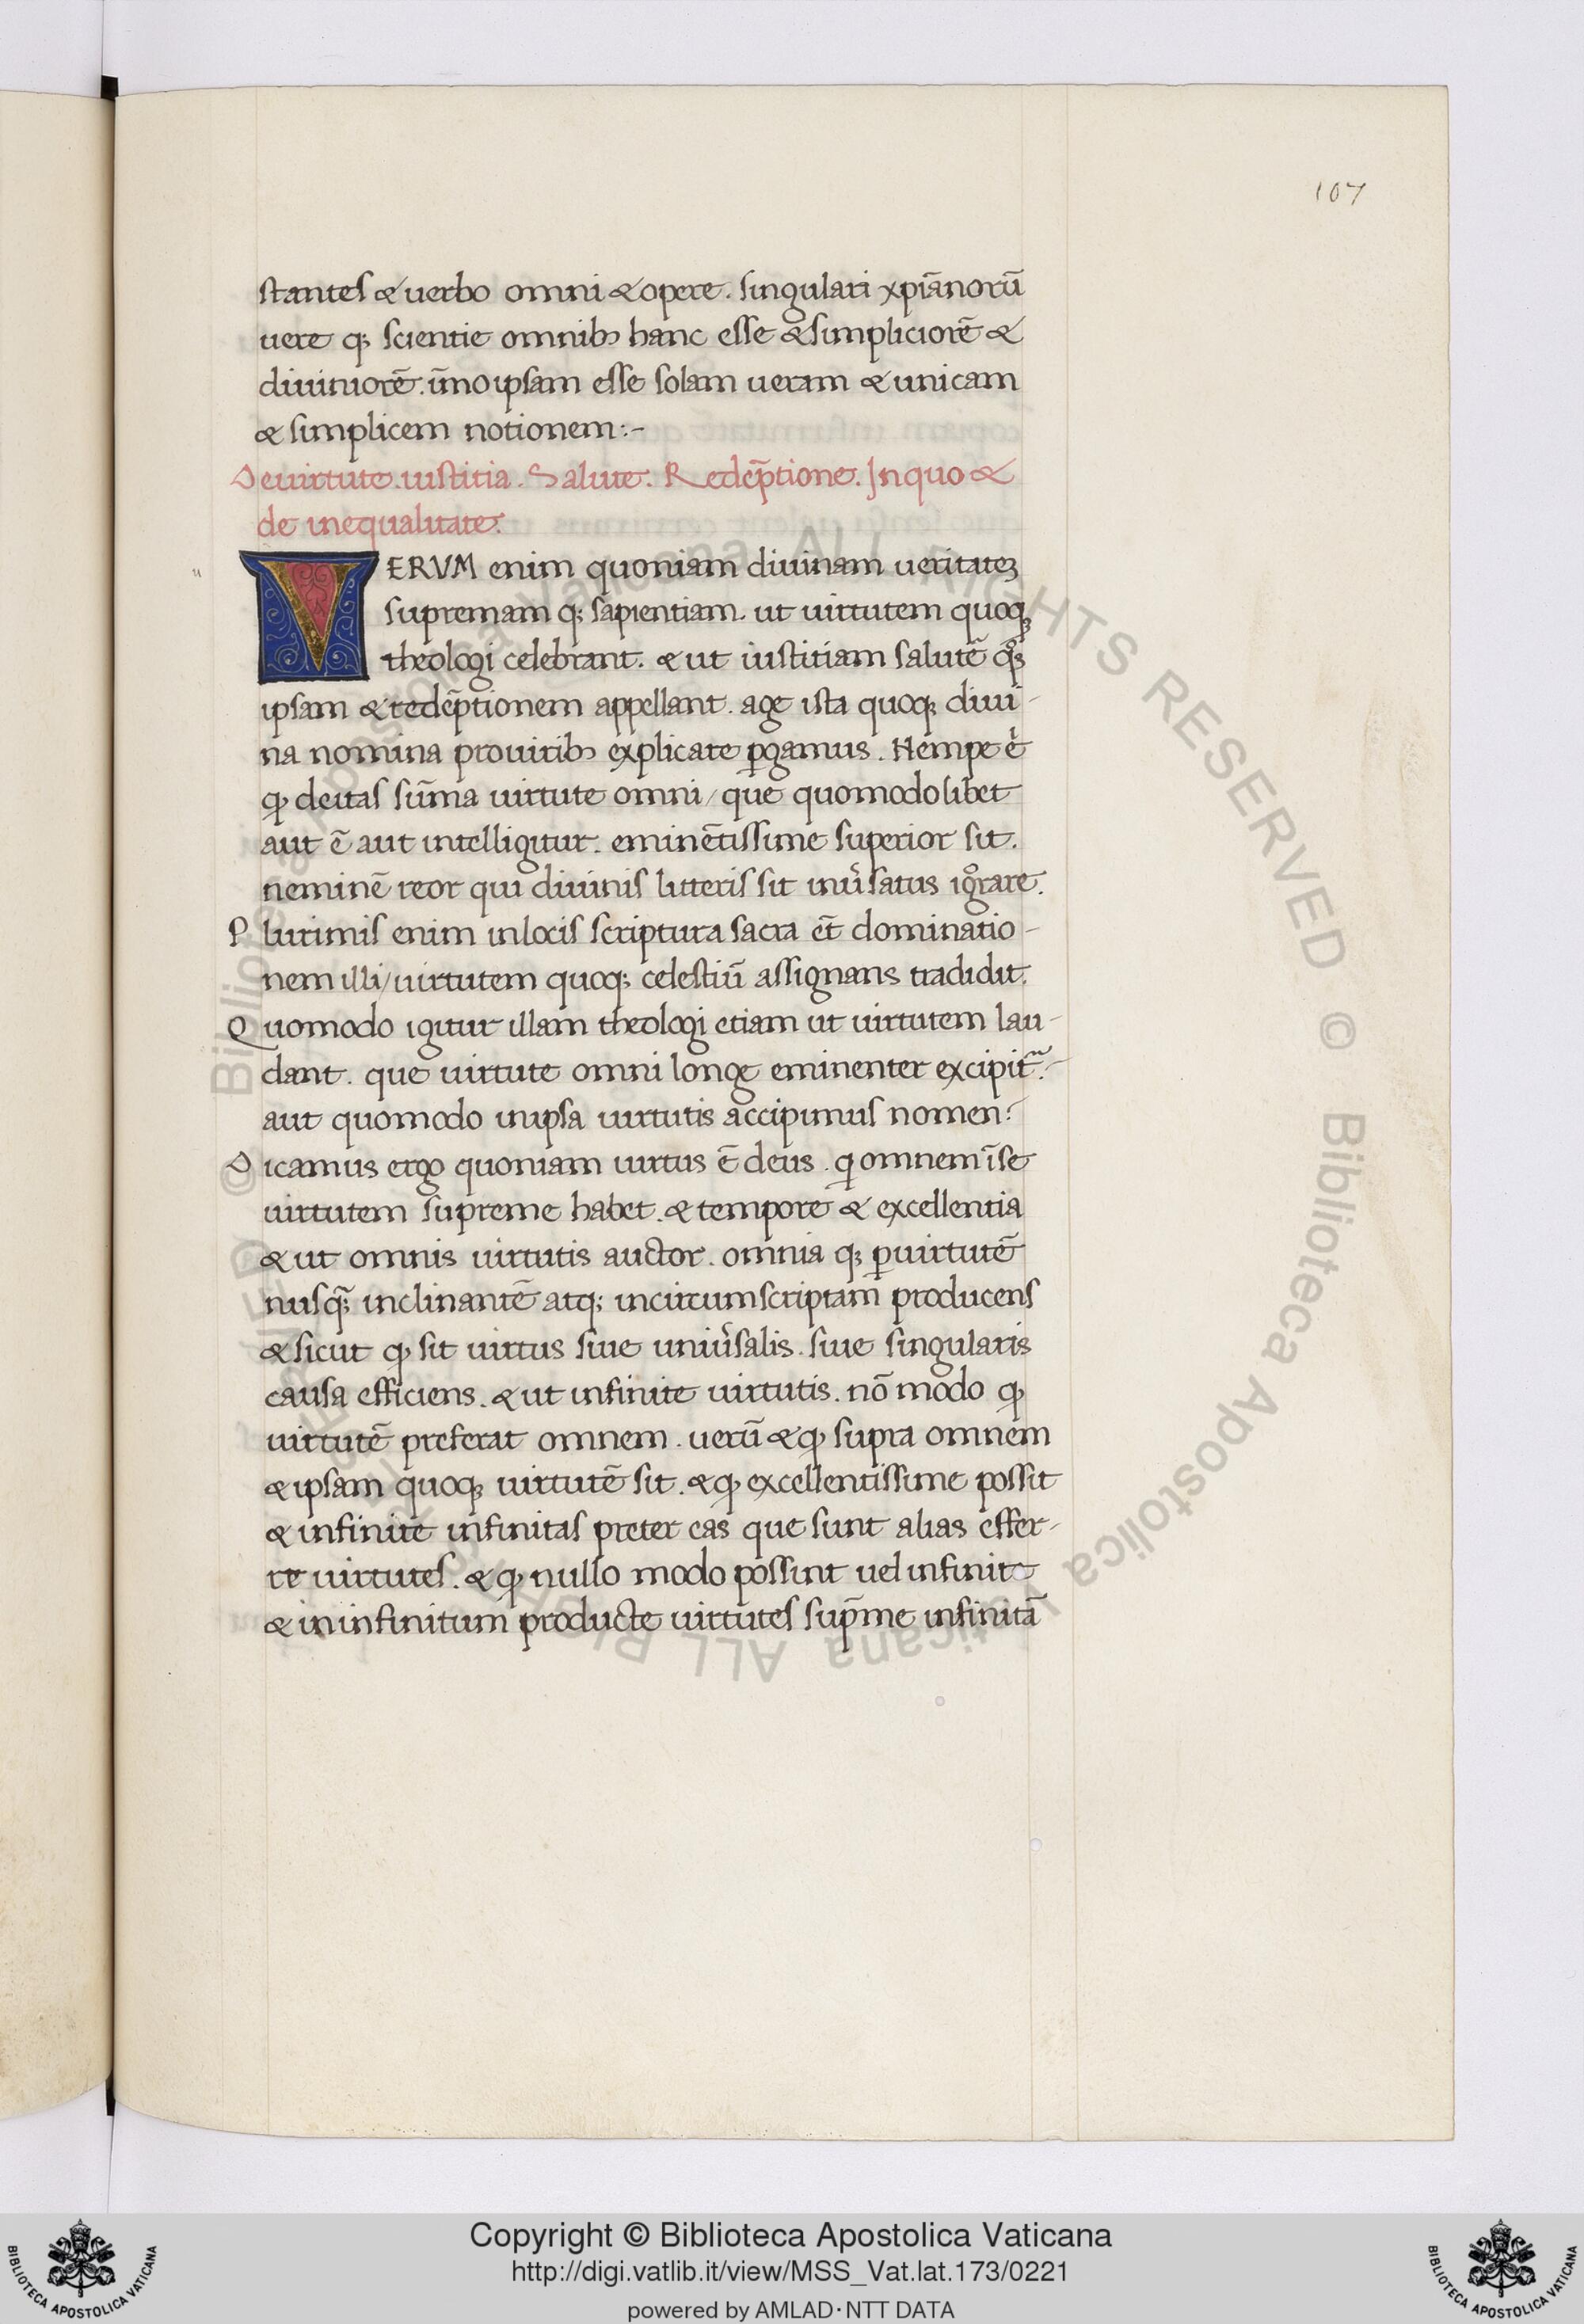 107
stantes & uerbo omni & opere. singulari xp̄ianorū
uere q; scientie omnib; hanc esse & simpliciorē &
diuiniorē. īmo ipsam esse solam ueram & unicam
& simplicem notionem:-
De uirtute. iustitia. Salute. Redēptione. In quo &
de inequalitate.
u
VERVM enim quoniam diuinam ueritateʒ
supremam q; sapientiam. ut uirtutem quoq;
theologi celebrant. & ut iustitiam salutē qͦq;
ipsam & redēptionem appellant. age ista quoq; diui-
na nomina pro uirib; explicare ꝑgamus. Nempe
ꝙ deitas sūma uirtute omni/ que quomodolibet
aut ē aut intelligitur. eminētissime superior sit.
neminē reor qui diuinis litteris sit inuersatus igͦrare.
Plurimis enim in locis scriptura sacra et̄ dominatio-
nem illi/ uirtutem quoq; celestiū assignans tradidit.
Quomodo igitur illam theologi etiam ut uirtutem lau-
dant. que uirtute omni longe eminenter excipit᷑.
aut quomodo in ipsa uirtutis accipimus nomen?
Dicamus ergo quoniam uirtus ē deus. qͥ omnem ī se
uirtutem supreme habet. & tempore & excellentia
& ut omnis uirtutis auctor. omnia q; ꝑ uirtutē
nusq̄; inclinantē atq; incircumscriptam producens
& sicut ꝙ sit uirtus siue uniu̓salis. siue singularis
causa efficiens. & ut infinite uirtutis. nō modo ꝙ
uirtutē preferat omnem. uerū & ꝙ supra omnem
& ipsam quoq; uirtutē sit. & ꝙ excellentissime possit
& infinite infinitas preter eas que sunt alias effer-
re uirtutes. & ꝙ nullo modo possint uel infinite
& in infinitum producte uirtutes sup̄me infinitā
Copyright © Biblioteca Apostolica Vaticana
http://digi.vatlib.it/view/MSS_Vat.lat.173/0221
powered by AMLAD·NTT DATA
BIBLIOTECA APOSTOLICA VATICANA
BIBLIOTECA APOSTOLICA VATICANA
© Biblioteca Apostolica Vaticana ALL RIGHTS RESERVED © Biblioteca Apostolica Vaticana ALL RIGHTS RESERVED